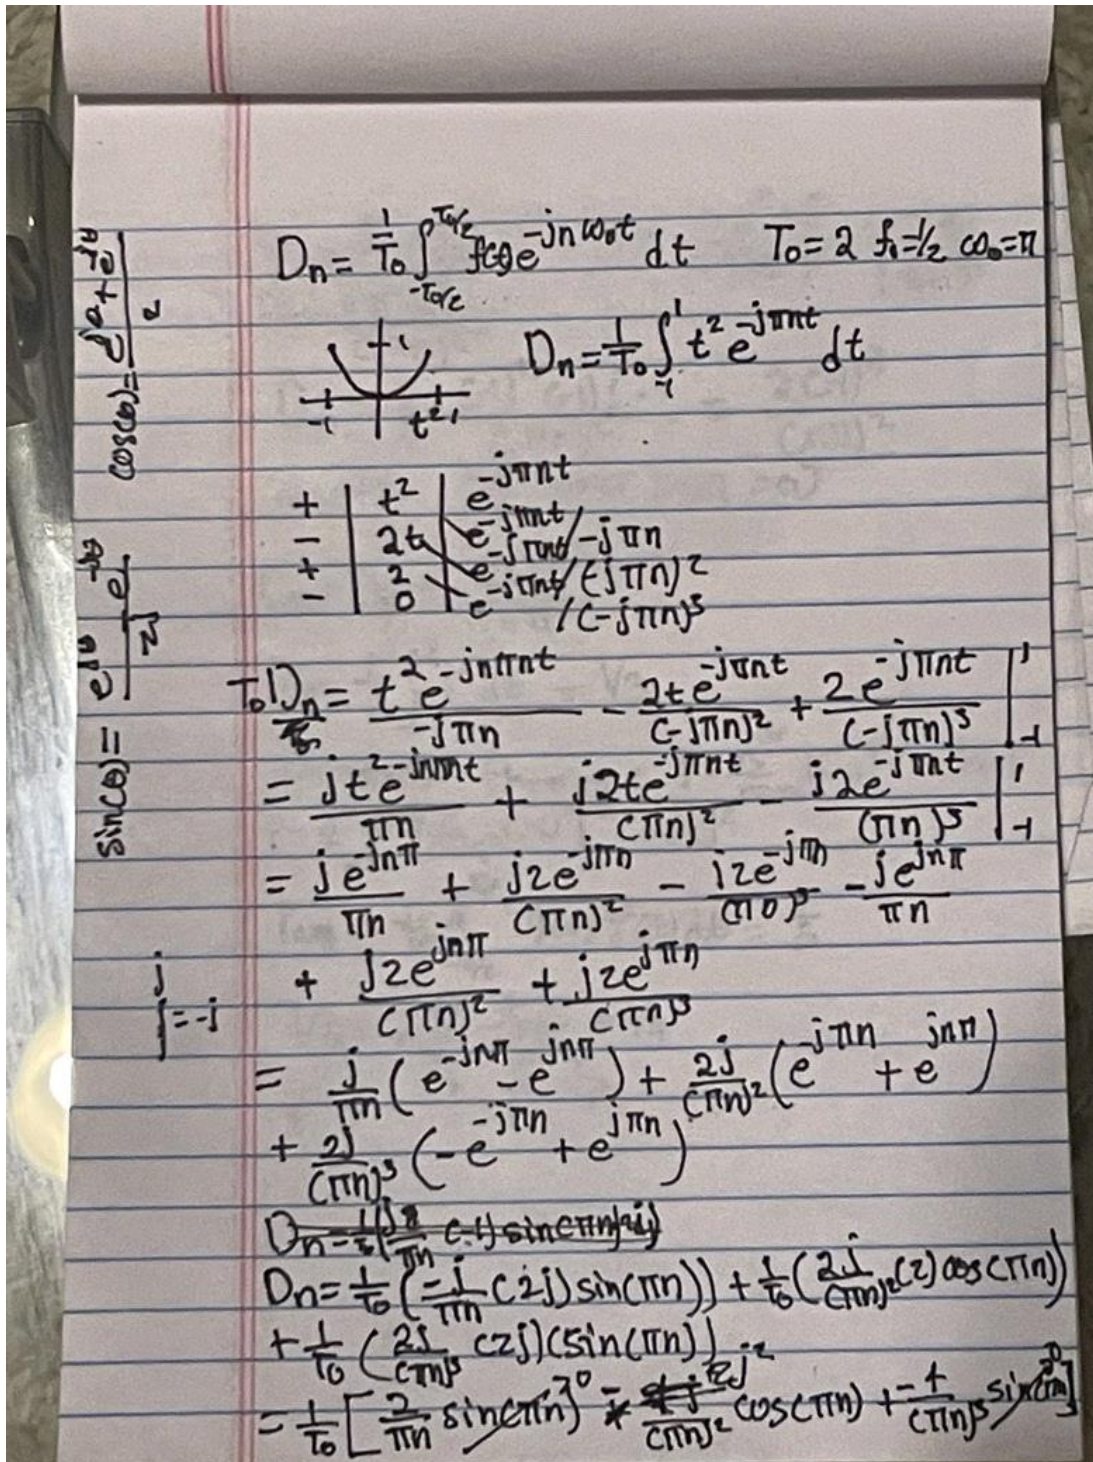 Dn = 1/T₀ ∫_{-T₀/2}^{T₀/2} f(t)e^{-jnω₀t} dt    T₀ = 2  f₀ = 1/2  ω₀ = π
1
-1  t²  1
Dn = 1/T₀ ∫_{-1}^{1} t² e^{-jπnt} dt
+ | t² | e^{-jπnt}
- | 2t | e^{-jπnt}/-jπn
+ | 2 | e^{-jπnt}/(-jπn)²
- | 0 | e^{-jπnt}/(-jπn)³
T₀Dn = t²e^{-jnπt}/-jπn - 2te^{-jπnt}/(-jπn)² + 2e^{-jπnt}/(-jπn)³ |_{-1}^{1}
= jt²e^{-jnπt}/πn + j2te^{-jπnt}/(πn)² - j2e^{-jπnt}/(πn)³ |_{-1}^{1}
= je^{-jnπ}/πn + j2e^{-jπn}/(πn)² - j2e^{-jπn}/(πn)³ - je^{jnπ}/πn
+ j2e^{jnπ}/(πn)² + j2e^{jπn}/(πn)³
= j/πn (e^{-jnπ} - e^{jnπ}) + 2j/(πn)² (e^{-jπn} + e^{jnπ})
+ 2j/(πn)³ (-e^{-jπn} + e^{jπn})
Dn = 1/T₀ (-j/πn (2j) sin(πn)) + 1/T₀ (2j/(πn)² (2) cos(πn))
+ 1/T₀ (2j/(πn)³ (2j)(sin(πn))
= 1/T₀ [2/πn sin(πn)⁰ - j²/(πn)² cos(πn) + -4/(πn)³ sin(πn)⁰]
cos(θ) = e^{jθ} + e^{-jθ}/2
sin(θ) = e^{jθ} - e^{-jθ}/2j
1/j = -j